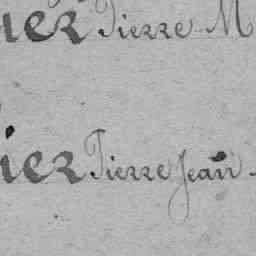 ier Pierre M
ier Pierre Jean